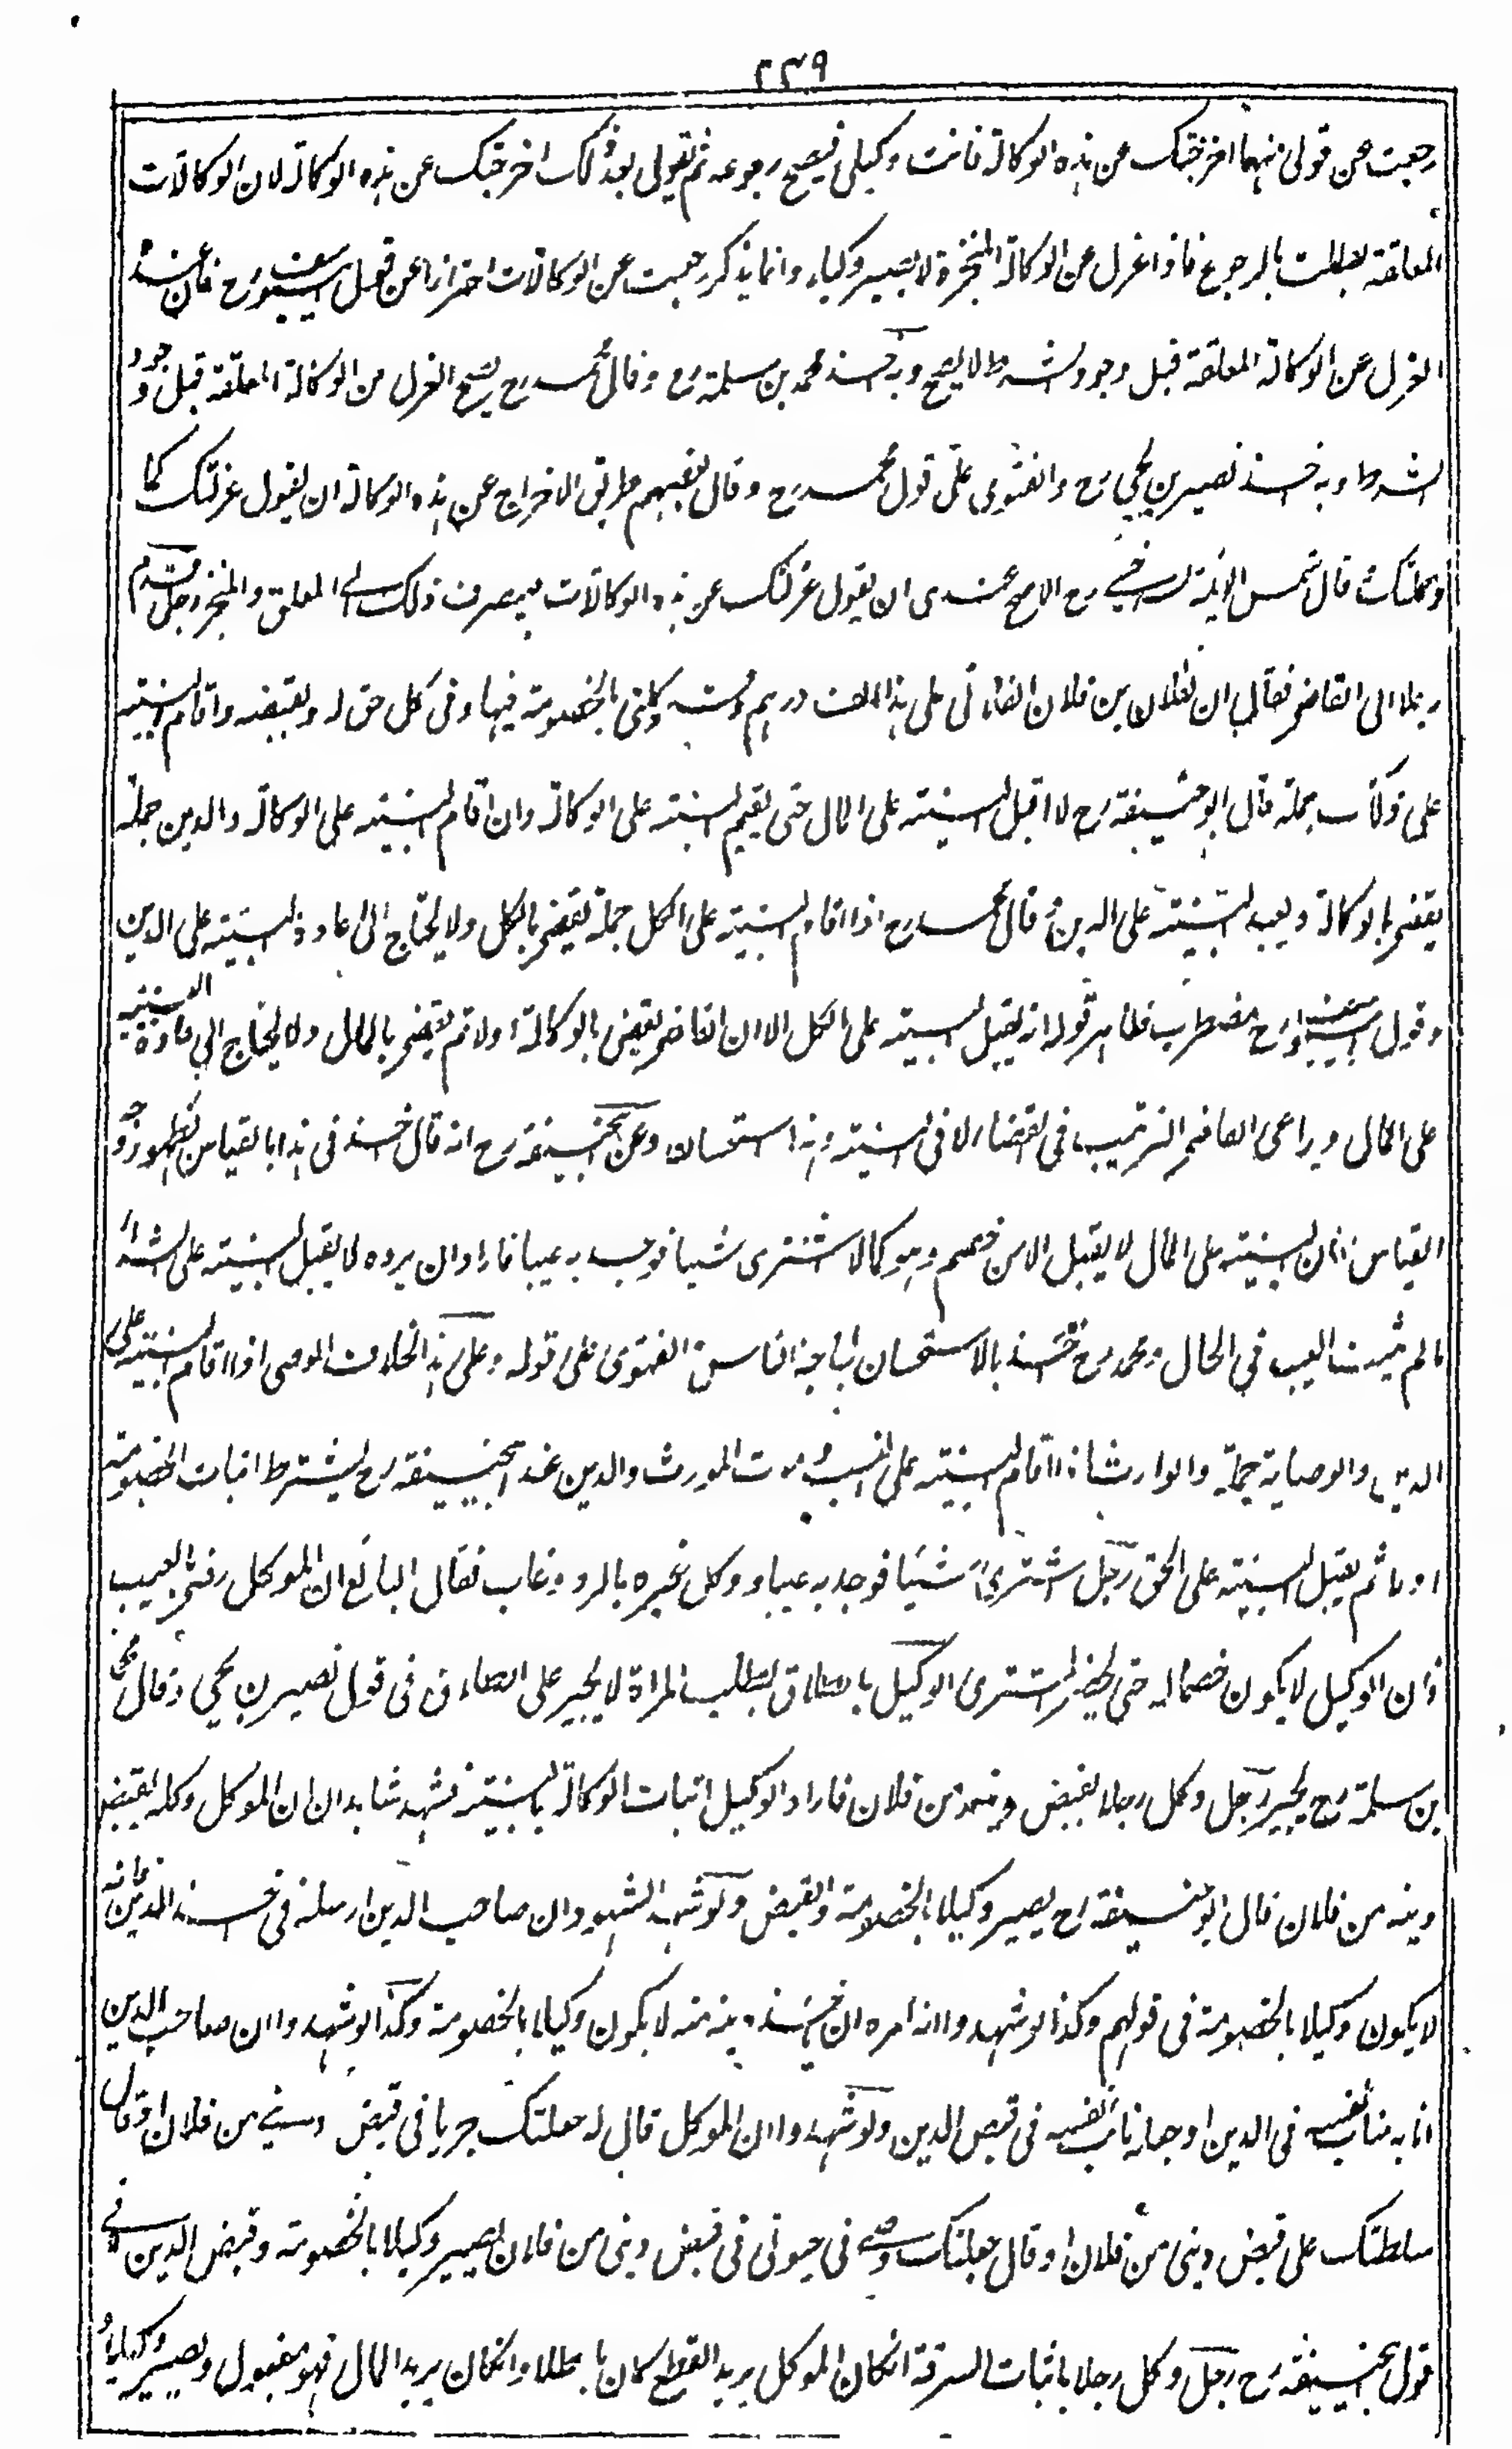 ٢٣٩
رجعت عن قولى منهما اخرجتك عن هذه الوكالة فانت وكيلى فيصح رجوعه ثم تقولى بعد ذلك اخرجتك عن هذه الوكالة لان الوكالات
المعلقة بطلت بالرجوع فاذا عزل عن الوكالة المنجزة لا يصير وكيلا وانما يذكر رجعت عن الوكالات احترازا عن قول ابيوسف رح فان عنده
العزل عن الوكالة المعلقة قبل وجود الشرط لا يصح وبه اخذ محمد بن سلمة رح وقال محمد رح يصح العزل من الوكالة المعلقة قبل وجود
الشرط وبه اخذ نصير بن يحيى رح والفتوى على قول محمد رح وقال بعضهم طريق الاخراج عن هذه الوكالة ان يقول عزلتك كما
وكلتك قال شمس الائمة السرخسى رح الاصح عندى ان يقول عزلتك عن هذه الوكالات فيصرف ذلك الى المعلق والمنجز رجل قدم
رجلا الى القاضى فقال ان لفلان بن فلان الفلانى على هذا الف درهم وقد وكلنى بالخصومة فيها وفى كل حق له وبقبضه واقام البينة
على ذلك جملة قال ابو حنيفة رح لا اقبل البينة على المال حتى يقيم البينة على الوكالة وان اقام البينة على الوكالة والدين جملة
يقضى بالوكالة ويعيد البينة على الدين وقال محمد رح اذا اقام البينة على الكل جملة يقضى بالكل ولا يحتاج الى اعادة البينة على الدين
وقول ابيوسف رح مضطرب فظاهر قوله انه يقبل البينة على الكل الا ان القاضى يقضى بالوكالة اولا ثم يقضى بالمال ولا يحتاج الى اعادة البينة
على المال ويراعى القاضى الترتيب فى القضاء لا فى البينة وهذا استحسان وعن ابيحنيفة رح انه قال اخذ فى هذا بالقياس لظهور وجه
القياس فان البينة على المال لا يقبل الا من خصم وهو كما لو اشترى شيئا فوجد به عيبا فاراد ان يرده لا يقبل البينة على الشراء
ما لم يثبت العيب فى الحال ومحمد رح اخذ بالاستحسان لحاجة الناس والفتوى على قوله وعلى هذا الخلاف الوصى اذا اقام البينة على
الدين والوصاية جملة والوارث اذا اقام البينة على النسب وموت المورث والدين عند ابيحنيفة رح يشترط اثبات الخصومة
اولا ثم يقبل البينة على الحق رجل اشترى شيئا فوجد به عيبا ووكل غيره بالرد وغاب فقال البائع ان الموكل رضى بالعيب
فان الوكيل لا يكون خصما له حتى يحضر المشترى الوكيل بالطلاق بطلب المراة لا يجبر على الطلاق فى قول نصير بن يحيى وقال محمد
بن سلمة رح يجبر رجل وكل رجلا بقبض دينه من فلان فاراد الوكيل اثبات الوكالة بالبينة فشهد شاهدان ان الموكل وكله بقبض
دينه من فلان قال ابو حنيفة رح يصير وكيلا بالخصومة والقبض ولو شهد الشهود ان صاحب الدين ارسله فى اخذ الدين فانه
لا يكون وكيلا بالخصومة فى قولهم وكذا لو شهدوا انه امره ان ياخذ دينه منه لا يكون وكيلا بالخصومة وكذا لو شهدوا ان صاحب الدين
انابه مناب نفسه فى الدين او جعله نائب نفسه فى قبض الدين ولو شهدوا ان الموكل قال له جعلتك جريا فى قبض دينى من فلان او قال
سلطتك على قبض دينى من فلان او قال جعلتك وصى فى حيوتى فى قبض دينى من فلان يصير وكيلا بالخصومة وقبض الدين فى
قول ابيحنيفة رح رجل وكل رجلا باثبات السرقة ان كان الموكل يريد القطع كان باطلا وان كان يريد المال فهو مقبول ويصير وكيلا